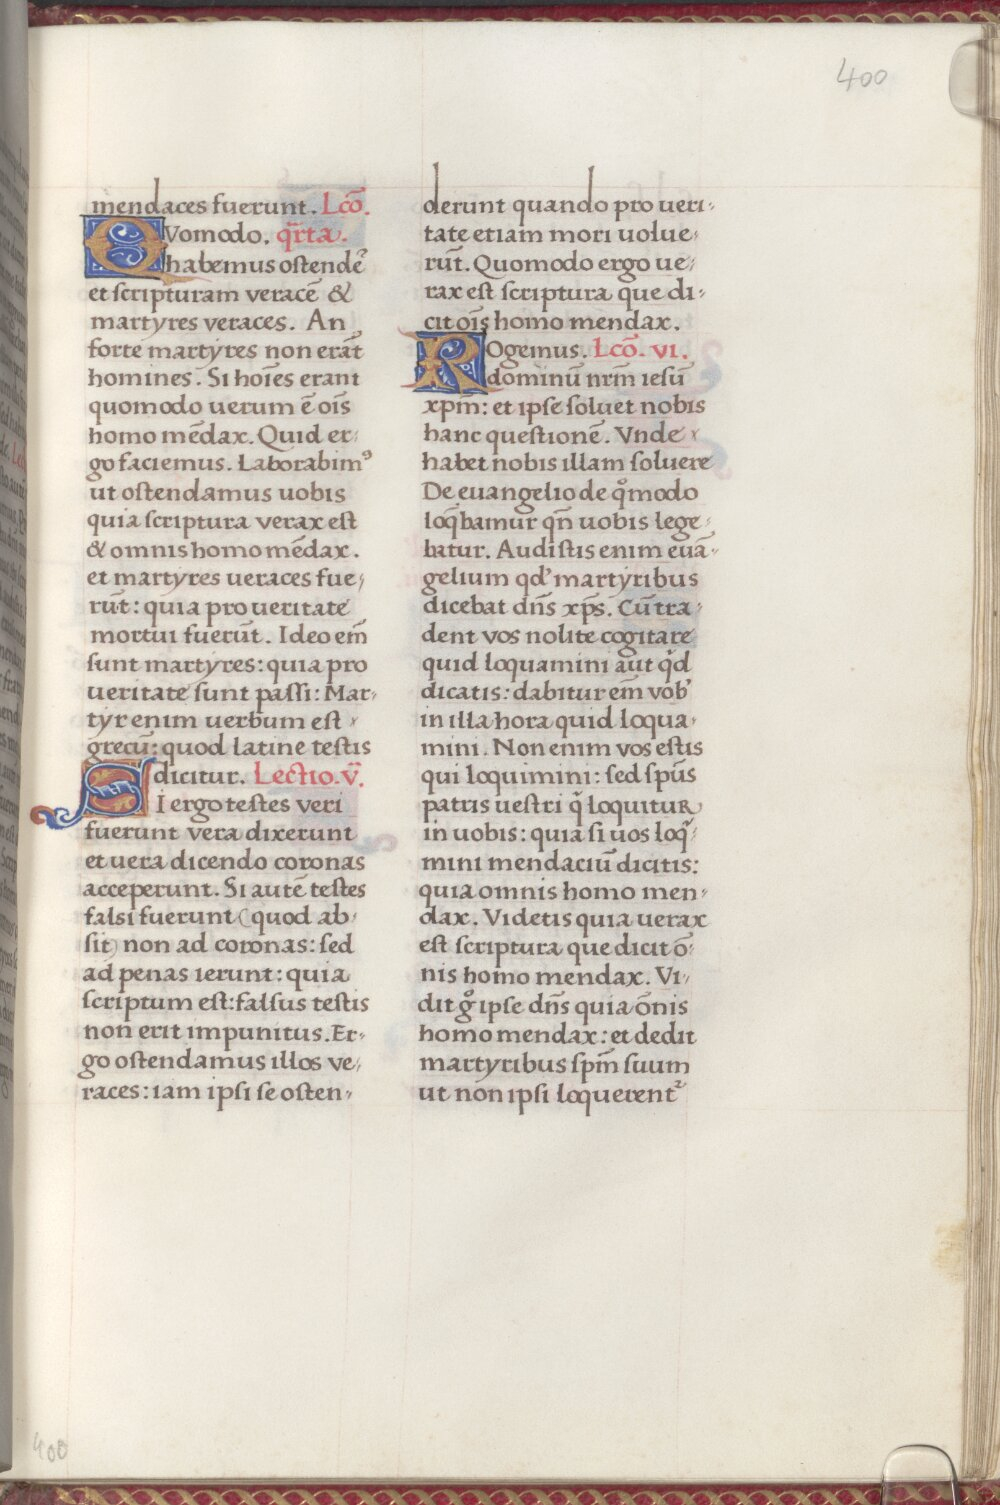 400
mendaces fuerunt. Lcõ.
QVomodo. qr̃ta.
habemus ostendẽ
et scripturam veracẽ &
martyres veraces. An
forte martyres non erãt
homines. Si hoĩes erant
quomodo uerum ẽ oĩs
homo mẽdax. Quid er-
go faciemus. Laborabimꝰ
ut ostendamus uobis
quia scriptura verax est
& omnis homo mẽdax.
et martyres ueraces fue-
rũt: quia pro ueritate
mortui fuerũt. Ideo em̃
sunt martyres: quia pro
ueritate sunt passi: Mar-
tyr enim uerbum est
grecũ: quod latine testis
dicitur. Lectio. v̄.
SI ergo testes veri
fuerunt vera dixerunt
et uera dicendo coronas
acceperunt. Si autẽ testes
falsi fuerunt (quod ab-
sit) non ad coronas: sed
ad penas ierunt: quia
scriptum est: falsus testis
non erit impunitus. Er-
go ostendamus illos ve-
races: iam ipsi se osten-
derunt quando pro ueri-
tate etiam mori uolue-
rũt. Quomodo ergo ue-
rax est scriptura que di-
cit oĩs homo mendax.
ROgemus. Lcõ. vi.
dominũ nrm̃ iesũ
xpm̃: et ipse soluet nobis
hanc questionẽ. Vnde
habet nobis illam soluere
De euangelio de qͦmodo
loq̃bamur qñ uobis lege-
batur. Audistis enim euã-
gelium qd' martyribus
dicebat dñs xps̃. Cũ tra-
dent vos nolite cogitare
quid loquamini aut qͥd
dicatis: dabitur em̃ vob'
in illa hora quid loqua-
mini. Non enim vos estis
qui loquimini: sed spũs
patris uestri qͥ loquitur
in uobis: quia si uos loqͥ-
mini mendaciũ dicitis:
quia omnis homo men-
dax. Videtis quia uerax
est scriptura que dicit õ-
nis homo mendax. Vi-
dit gͦ ipse dñs quia õnis
homo mendax: et dedit
martyribus spm̃ suum
ut non ipsi loquerent᷑
400